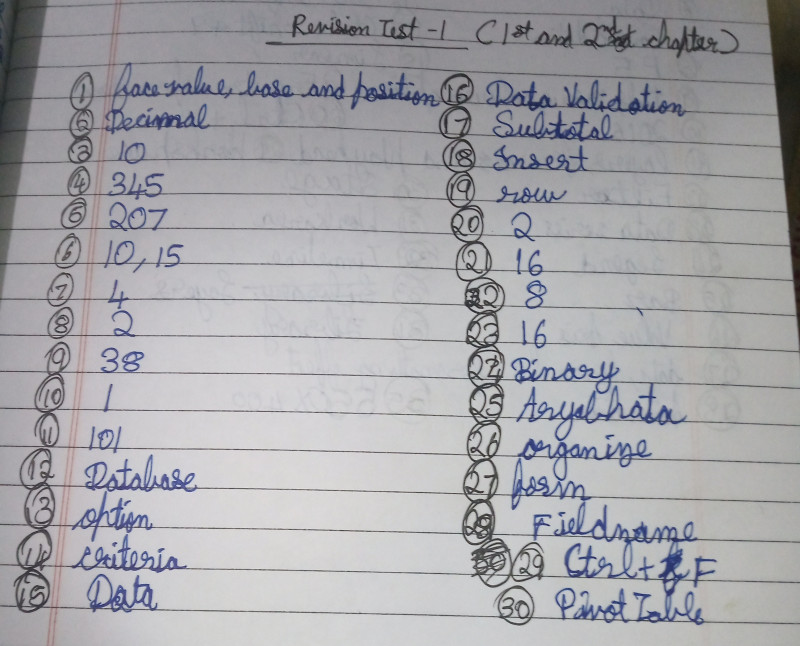 Revision Test - 1 (1st and 2nd chapter)
① face value, base and position
② Decimal
③ 10
④ 345
⑤ 207
⑥ 10, 15
⑦ 4
⑧ 2
⑨ 38
⑩ 1
⑪ 101
⑫ Database
⑬ option
⑭ criteria
⑮ Data
⑯ Data Validation
⑰ Subtotal
⑱ Insert
⑲ row
⑳ 2
㉑ 16
㉒ 8
㉓ 16
㉔ Binary
㉕ Aryabhata
㉖ organize
㉗ form
㉘ Fieldname
㉙ Ctrl + F
㉚ Pivot Table